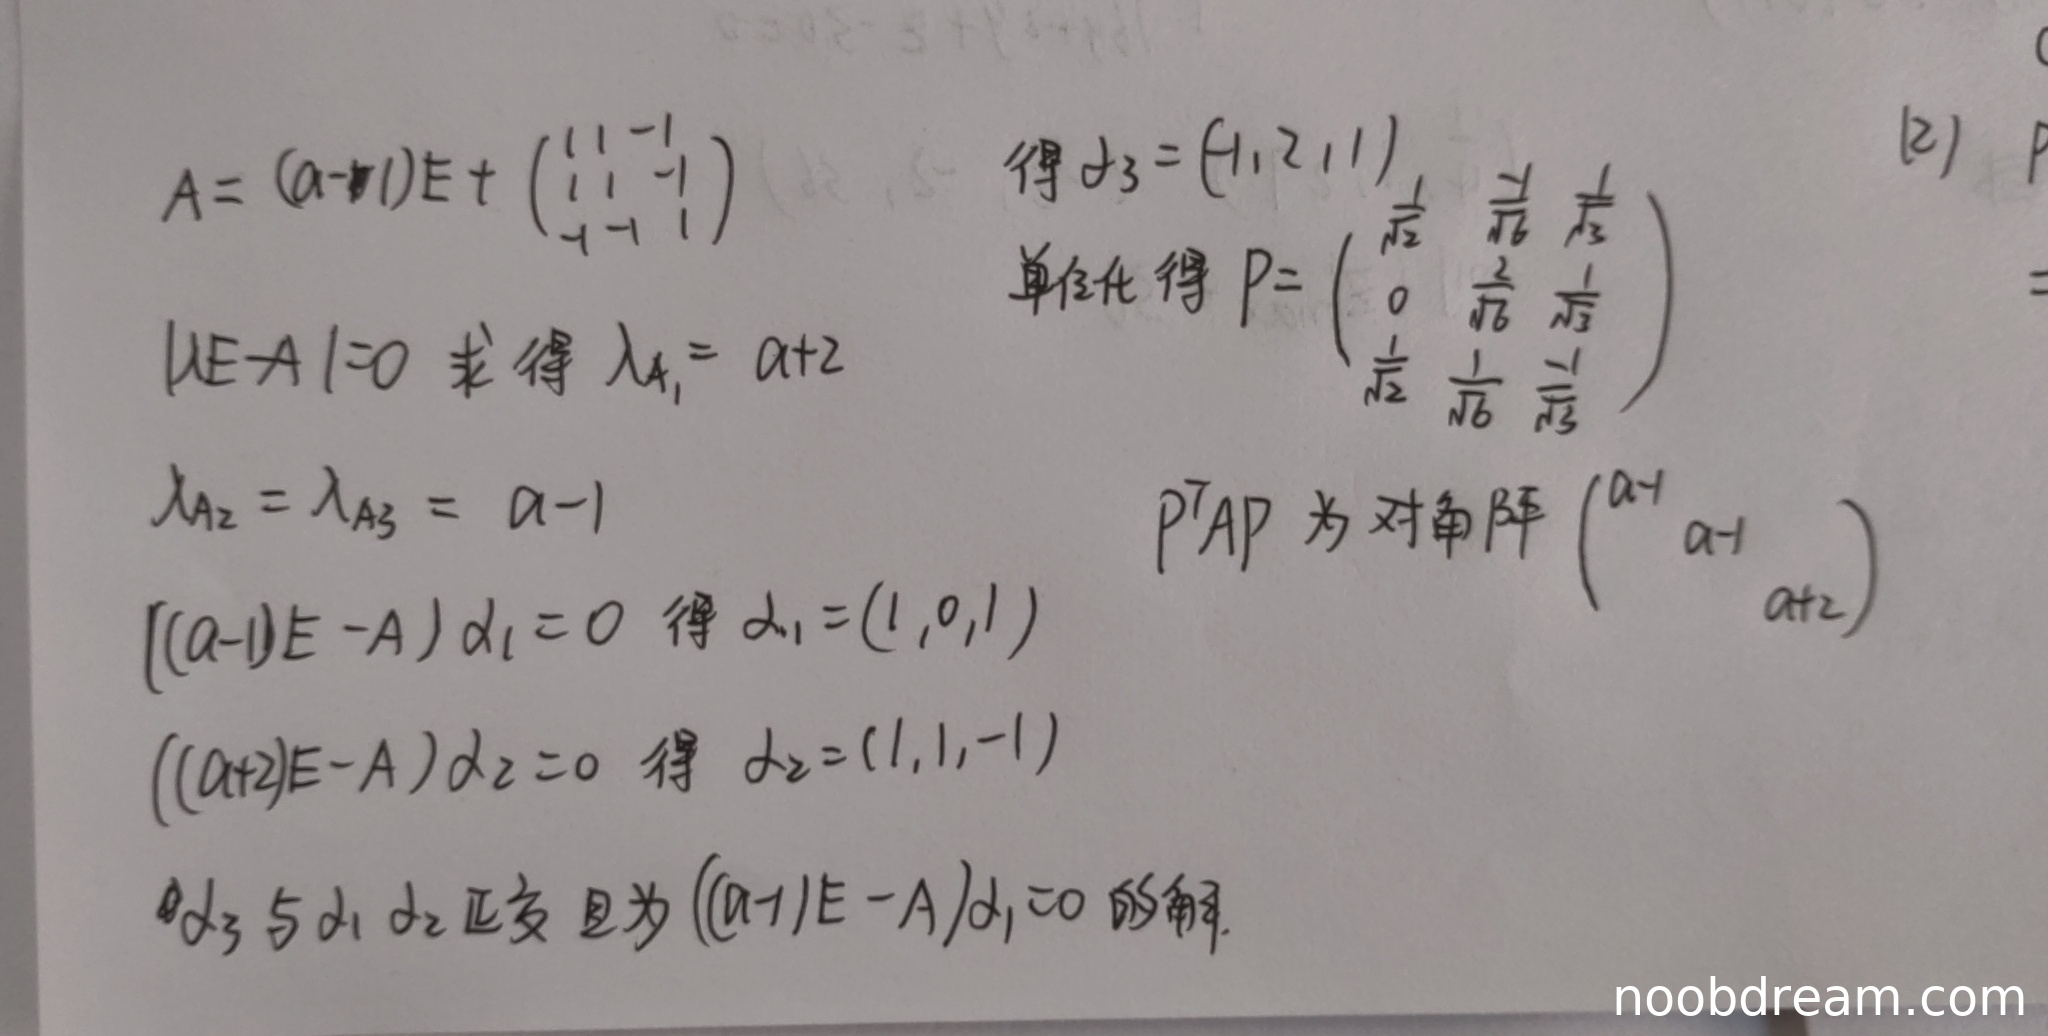 A = (a-1)E + ( 1 1 -1
1 1 -1
-1 -1 1 )
|λE-A|=0 求得 λA₁ = a+2
λA₂ = λA₃ = a-1
((a-1)E-A)α₁=0 得 α₁=(1,0,1)
((a+2)E-A)α₂=0 得 α₂=(1,1,-1)
α₃与α₁ α₂正交且为((a-1)E-A)α₁=0的解.
得 α₃=(-1,2,1)
单位化得 P= ( 1/√2 -1/√6 1/√3
0 2/√6 1/√3
1/√2 1/√6 -1/√3 )
PᵀAP 为对角阵 ( a-1
a-1
a+2 )
(2) P
=
noobdream.com